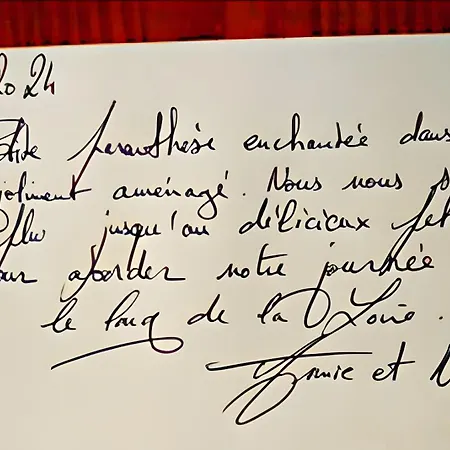 2024
parenthèse enchantée dans
joliment aménagé. Nous nous
plu jusqu'au délicieux
aborder notre journée
le long de la Loire.
et